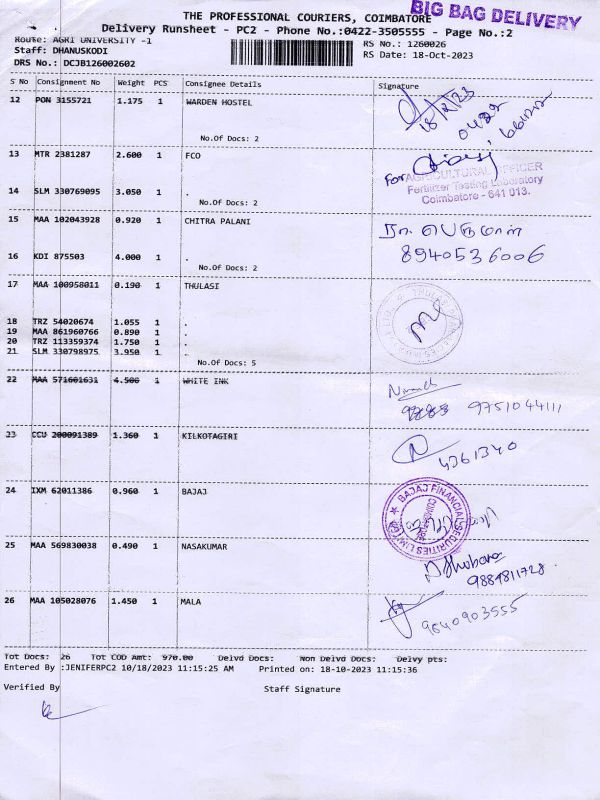 THE PROFESSIONAL COURIERS, COIMBATORE
BIG BAG DELIVERY
Delivery Runsheet - PC2 - Phone No.:0422-3505555 - Page No.:2
Route: AGRI UNIVERSITY -1
RS No.: 1260026
Staff: DHANUSKODI
RS Date: 18-Oct-2023
DRS No.: DCJB126002602
S No Consignment No Weight PCS Consignee Details Signature
12 PON 3155721 1.175 1 WARDEN HOSTEL
No.Of Docs: 2
13 MTR 2381287 2.600 1 FCO
For
AGRICULTURAL OFFICER
Fertilizer Testing Laboratory
Coimbatore - 641 013.
14 SLM 330769095 3.050 1 .
No.Of Docs: 2
15 MAA 102043928 0.920 1 CHITRA PALANI
ரா. பெருமாள்
8940536006
16 KDI 875503 4.000 1 .
No.Of Docs: 2
17 MAA 100958011 0.190 1 THULASI
18 TRZ 54020674 1.055 1 .
19 MAA 861960766 0.890 1 .
20 TRZ 113359374 1.750 1 .
21 SLM 330798975 3.950 1 .
No.Of Docs: 5
22 MAA 571601631 4.500 1 WHITE INK
9751044111
23 CCU 200091389 1.360 1 KILKOTAGIRI
4361340
24 IXM 62011386 0.960 1 BAJAJ
BAJAJ FINANCIAL SECURITIES LIMITED
25 MAA 569830038 0.490 1 NASAKUMAR
9884811728
26 MAA 105028076 1.450 1 MALA
9840903555
Tot Docs: 26 Tot COD Amt: 970.00 Delvd Docs: Non Delvd Docs: Delvy pts:
Entered By :JENIFERPC2 10/18/2023 11:15:25 AM Printed on: 18-10-2023 11:15:36
Verified By Staff Signature